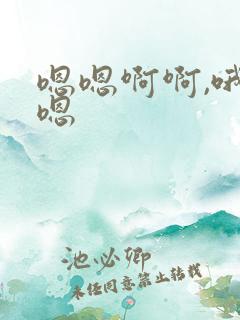 嗯嗯啊啊,哦
嗯
池必卿
未经同意禁止转载